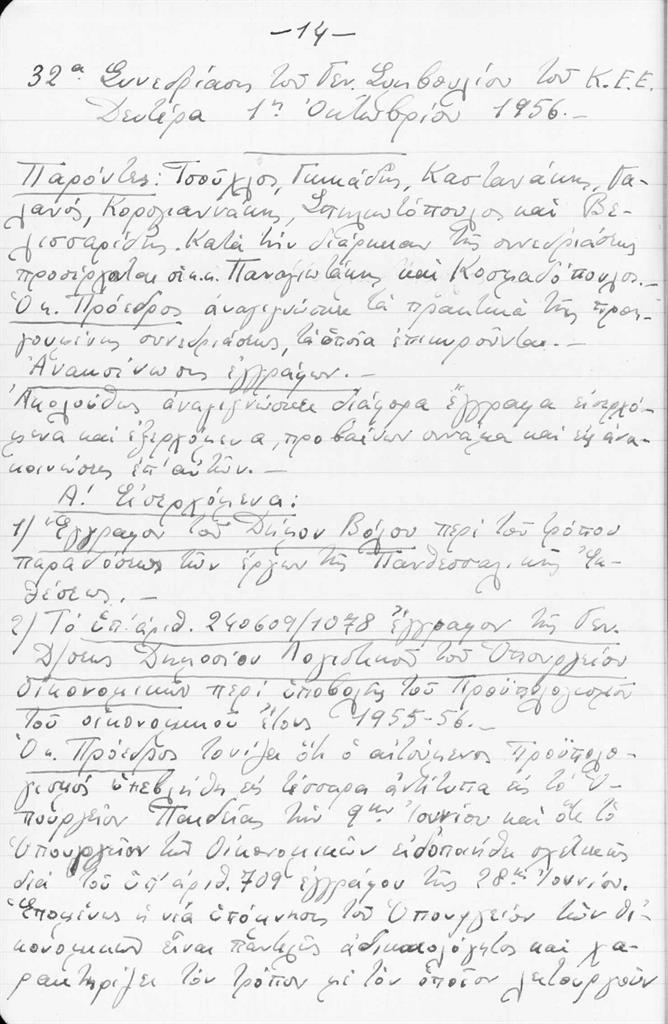 -14-
32α Συνεδρίασις τοῦ Γεν. Συμβουλίου τοῦ Κ.Ε.Ε.
Δευτέρα 1η Ὀκτωβρίου 1956.-
Παρόντες: Τσοῦχλος, Γιμάδης, Καστανάκης, Γα-
λανός, Κορογιαννάκης, Σπηλιωτόπουλος καὶ Βε-
λισσαρίδης. Κατὰ τὴν διάρκειαν τῆς συνεδριάσεως
προσέρχονται οἱ κ.κ. Παναγιωτάκης καὶ Κοσμαδόπουλος.-
Ὁ κ. Πρόεδρος ἀναγιγνώσκει τὰ πρακτικὰ τῆς προη-
γουμένης συνεδριάσεως, τὰ ὁποῖα ἐπικυροῦνται.-
Ἀνακοίνωσις ἐγγράφων.-
Ἀκολούθως ἀναγιγνώσκει διάφορα ἔγγραφα εἰσερχό-
μενα καὶ ἐξερχόμενα, προβαίνων συνάμα καὶ εἰς ἀνα-
κοινώσεις ἐπ' αὐτῶν.-
Α! Εἰσερχόμενα:
1) Ἔγγραφον τοῦ Δήμου Βόλου περὶ τοῦ τρόπου
παραδόσεως τῶν ἔργων τῆς Πανθεσσαλικῆς Ἐκ-
θέσεως.-
2) Τὸ ὑπ' ἀριθ. 240609/1078 ἔγγραφον τῆς Γεν.
Δ/σεως Δημοσίου Λογιστικοῦ τοῦ Ὑπουργείου
Οἰκονομικῶν περὶ ὑποβολῆς τοῦ Προϋπολογισμοῦ
τοῦ οἰκονομικοῦ ἔτους 1955-56.-
Ὁ κ. Πρόεδρος τονίζει ὅτι ὁ αἰτούμενος προϋπολο-
γισμός ὑπεβλήθη εἰς τέσσαρα ἀντίτυπα εἰς τὸ Ὑ-
πουργεῖον Παιδείας τὴν 9ην Ἰουνίου καὶ ὅτι τὸ
Ὑπουργεῖον τῶν Οἰκονομικῶν εἰδοποιήθη σχετικῶς
διὰ τοῦ ὑπ' ἀριθ. 709 ἐγγράφου τῆς 28ης Ἰουνίου.
Ἑπομένως ἡ νέα ὑπόμνησις τοῦ Ὑπουργείου τῶν Οἰ-
κονομικῶν εἶναι παντελῶς ἀδικαιολόγητος καὶ χα-
ρακτηρίζει τὸν τρόπον μὲ τὸν ὁποῖον λειτουργοῦν